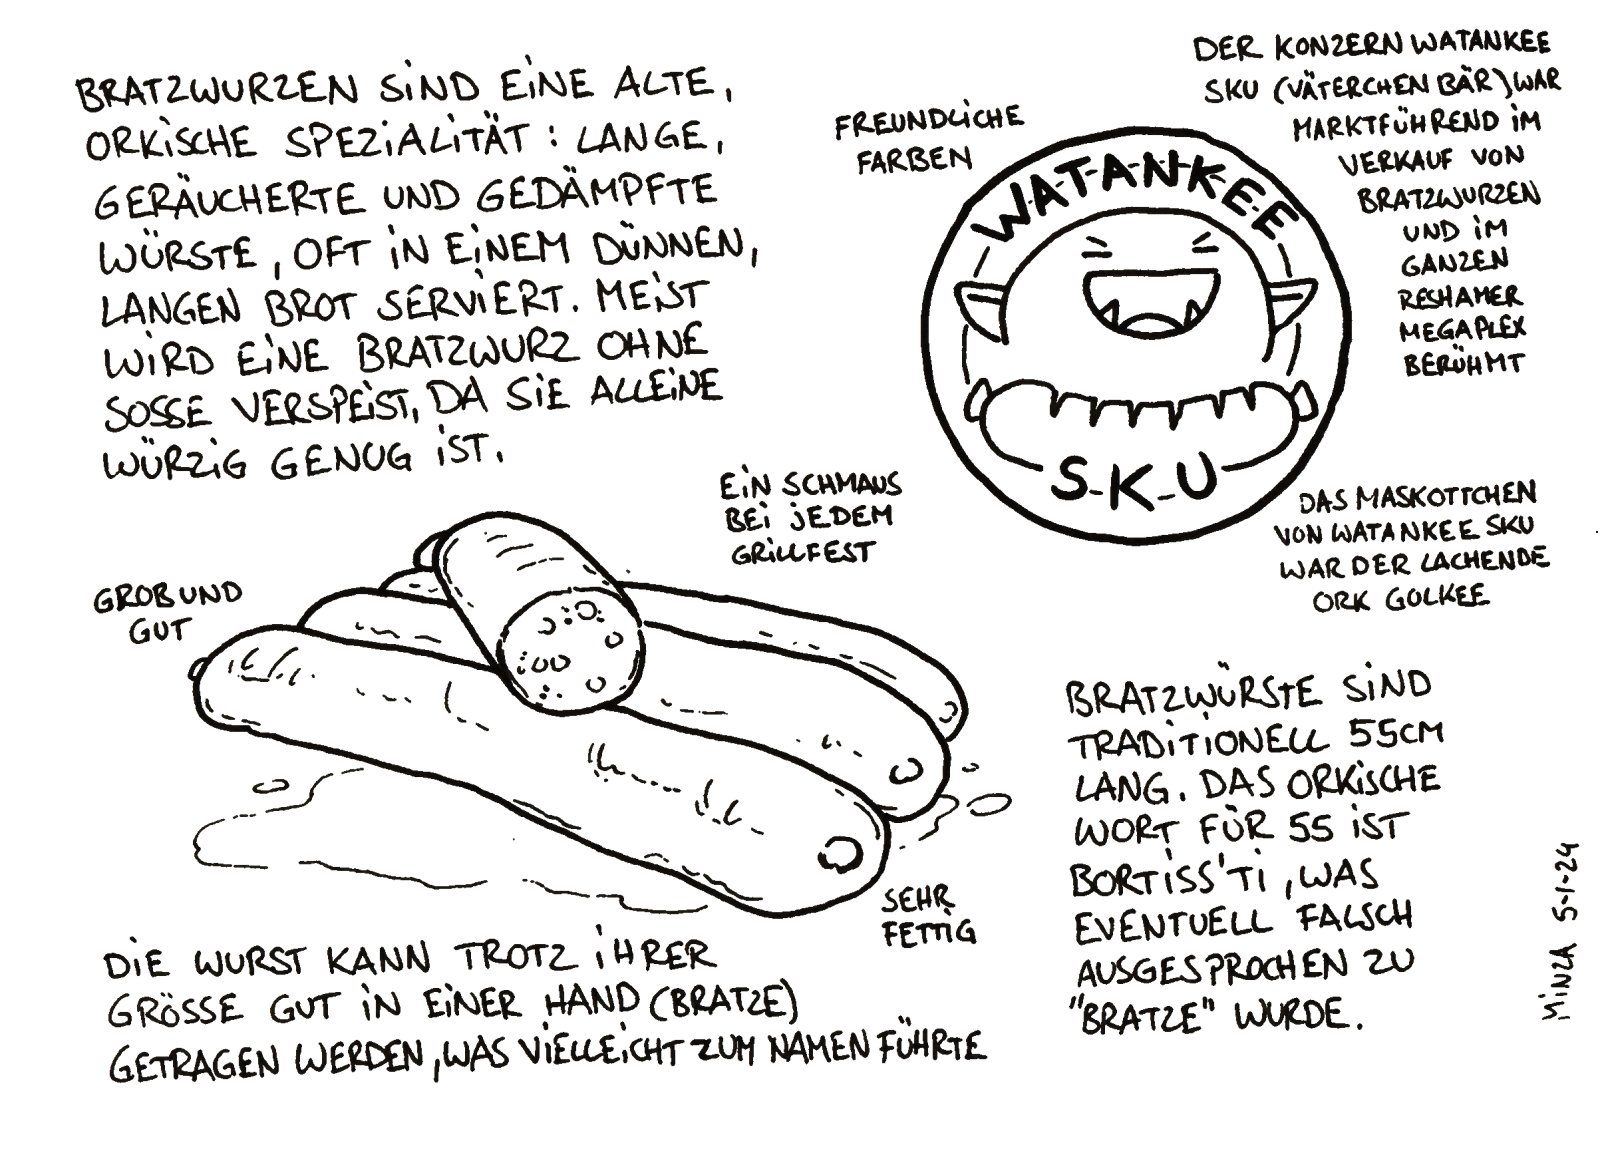 BRATZWURZEN SIND EINE ALTE,
ORKISCHE SPEZIALITÄT: LANGE,
GERÄUCHERTE UND GEDÄMPFTE
WÜRSTE, OFT IN EINEM DÜNNEN,
LANGEN BROT SERVIERT. MEIST
WIRD EINE BRATZWURZ OHNE
SOSSE VERSPEIST, DA SIE ALLEINE
WÜRZIG GENUG IST.
FREUNDLICHE
FARBEN
W-A-T-A-N-K-E-E
S-K-U
DER KONZERN WATANKEE
SKU (VÄTERCHEN BÄR) WAR
MARKTFÜHREND IM
VERKAUF VON
BRATZWURZEN
UND IM
GANZEN
RESHAMER
MEGAPLEX
BERÜHMT
DAS MASKOTTCHEN
VON WATANKEE SKU
WAR DER LACHENDE
ORK GOLKEE
EIN SCHMAUS
BEI JEDEM
GRILLFEST
GROB UND
GUT
SEHR
FETTIG
DIE WURST KANN TROTZ IHRER
GRÖSSE GUT IN EINER HAND (BRATZE)
GETRAGEN WERDEN, WAS VIELLEICHT ZUM NAMEN FÜHRTE
BRATZWÜRSTE SIND
TRADITIONELL 55CM
LANG. DAS ORKISCHE
WORT FÜR 55 IST
BORTISS'TI, WAS
EVENTUELL FALSCH
AUSGESPROCHEN ZU
"BRATZE" WURDE.
MINZA 5-1-24